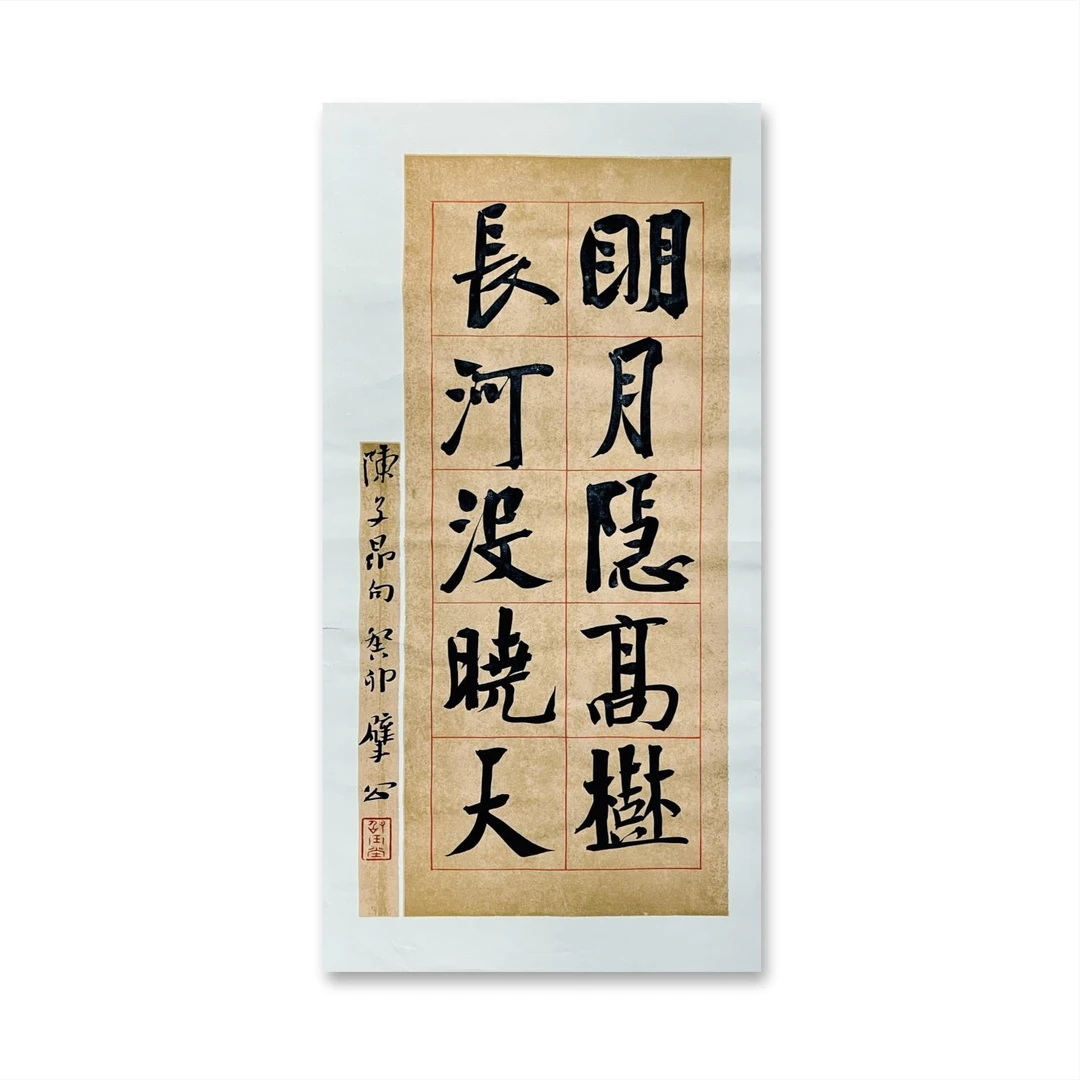 明月隱高樹
長河没曉天
陳子昂句 癸卯 擘公